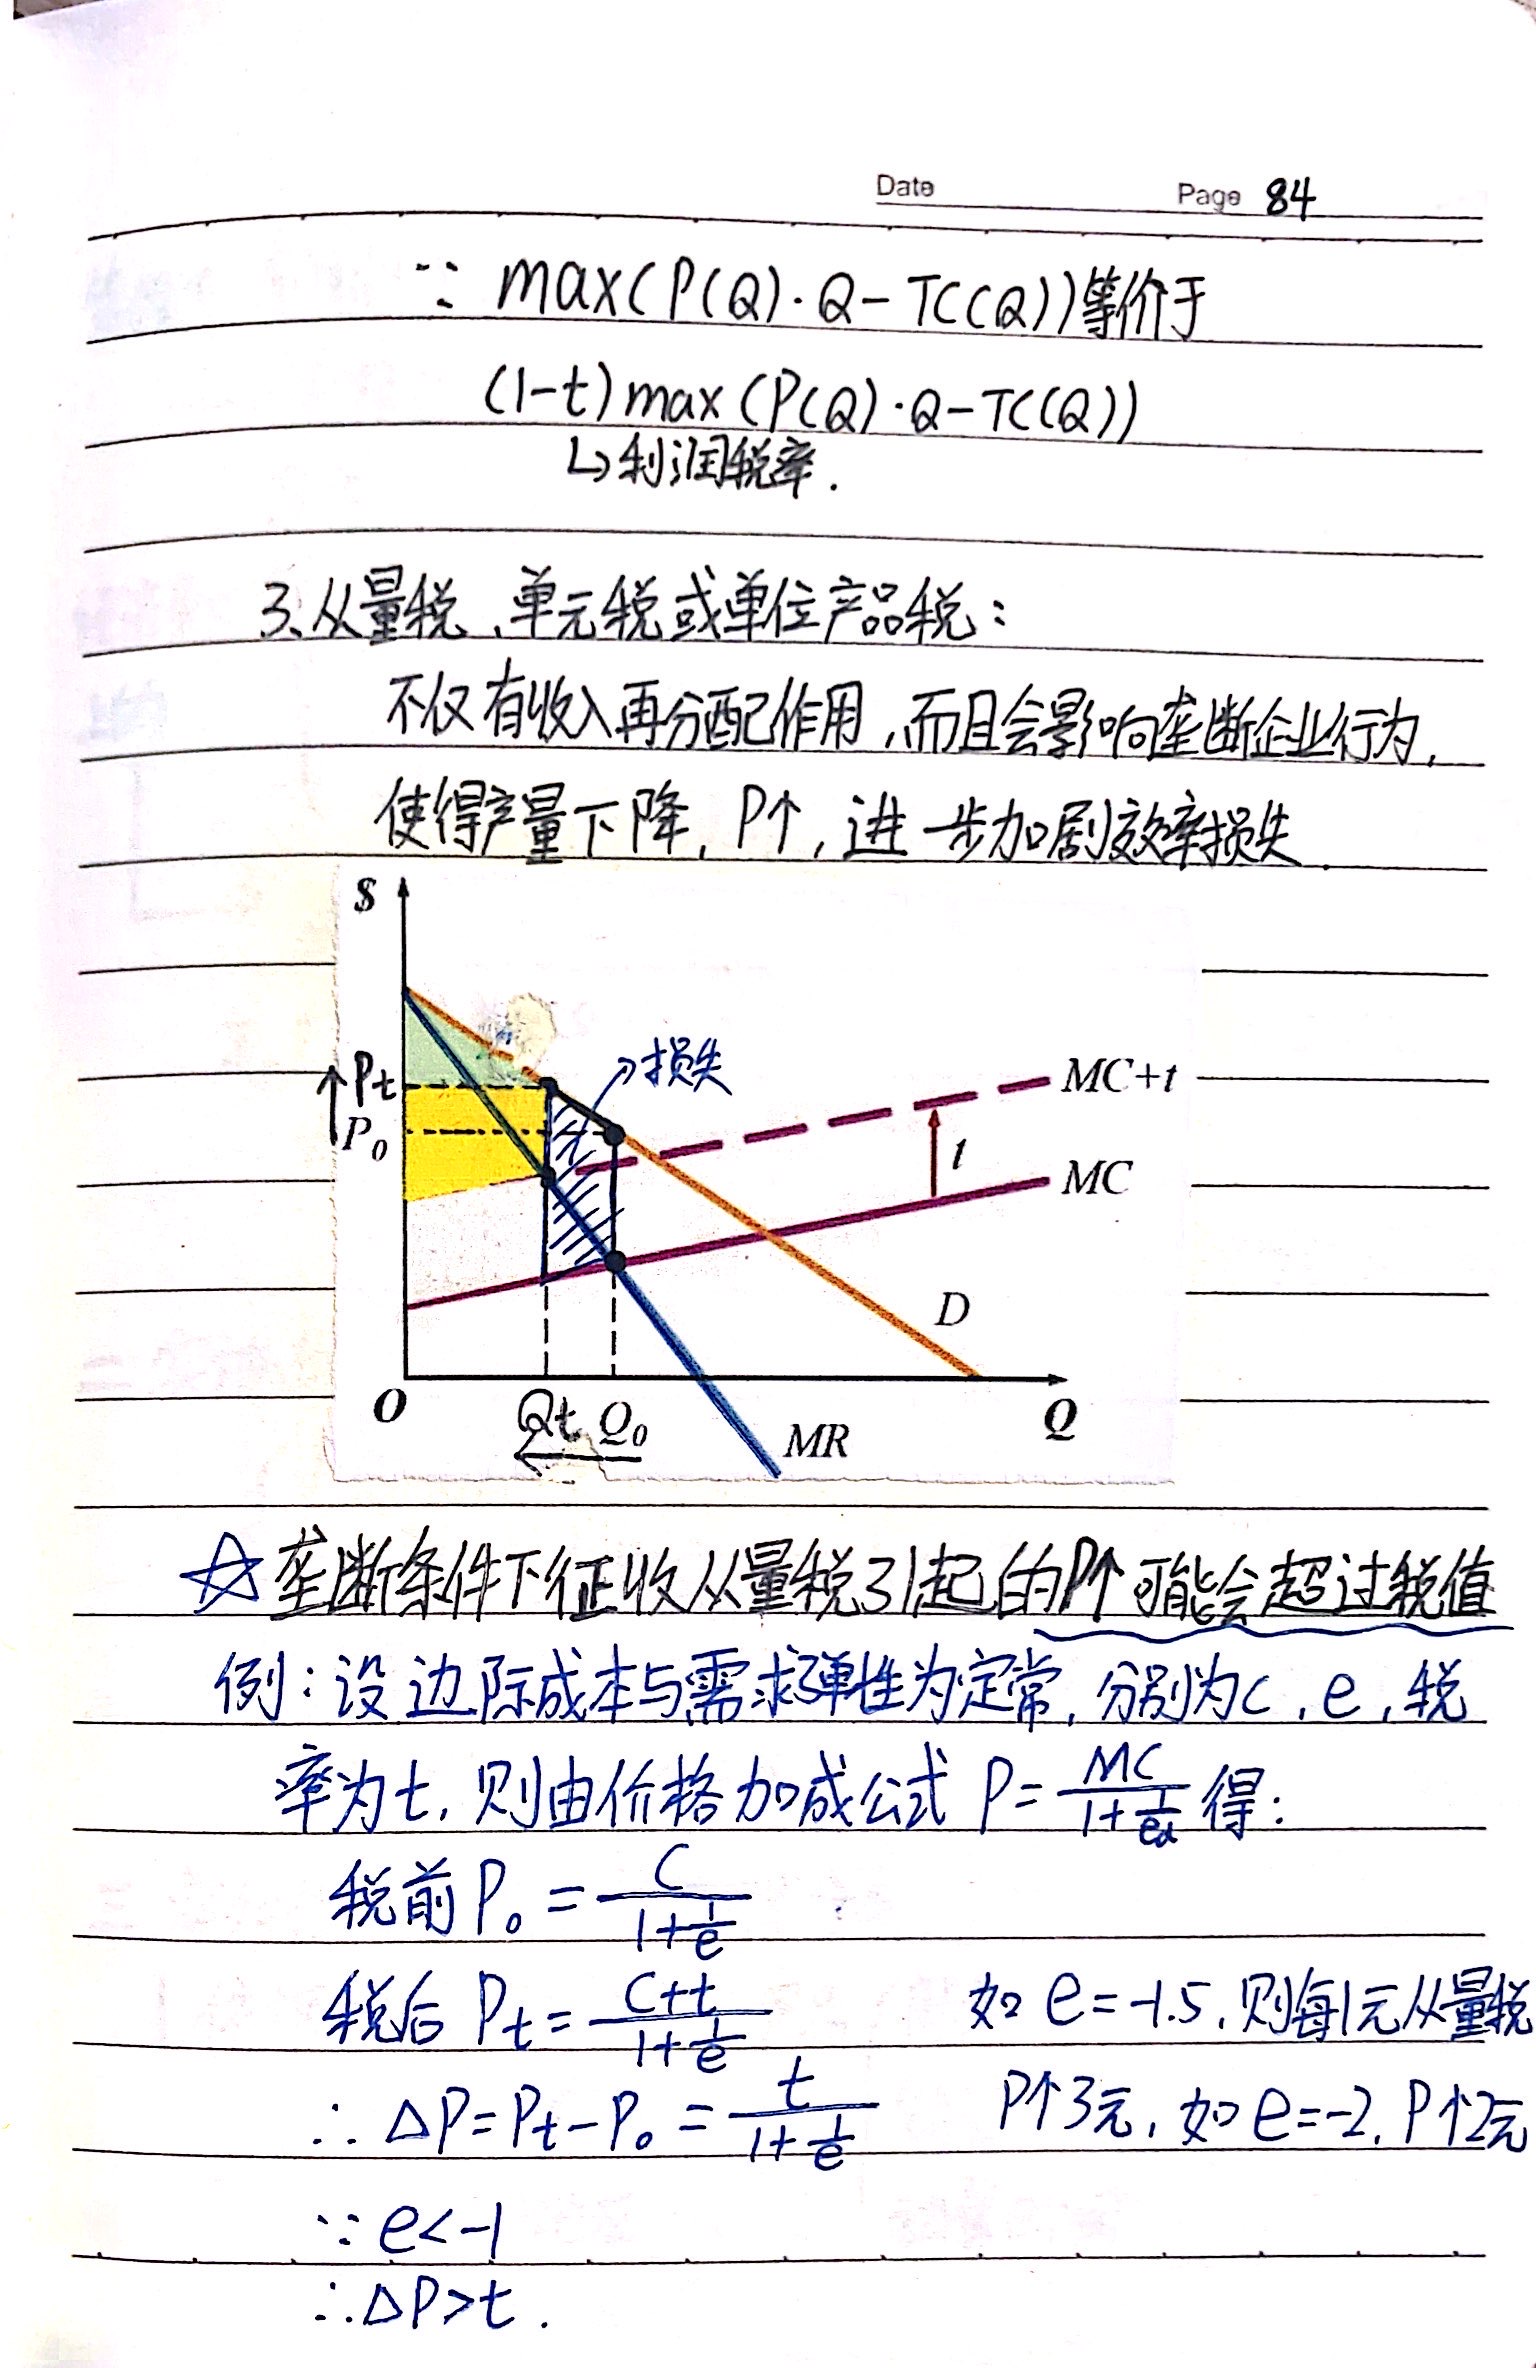 Date Page 84
∵ max(P(Q)·Q-TC(Q))等价于
(1-t)max(P(Q)·Q-TC(Q))
↳利润税率.
3、从量税、单元税或单位产品税:
不仅有收入再分配作用,而且会影响垄断企业行为,
使得产量下降,P↑,进一步加剧效率损失.
$
损失
↑Pt
P₀
MC+t
t
MC
D
O
Qt Q₀
Q
MR
☆垄断条件下征收从量税引起的P↑可能会超过税值
例:设边际成本与需求弹性为定常,分别为c,e,税
率为t,则由价格加成公式 P=MC/(1+1/ed) 得:
税前P₀=C/(1+1/e)
税后 Pt=(C+t)/(1+1/e) 如e=-1.5,则每1元从量税
∴ΔP=Pt-P₀=t/(1+1/e) P↑3元,如e=-2,P↑2元
∵e<-1
∴ΔP>t.